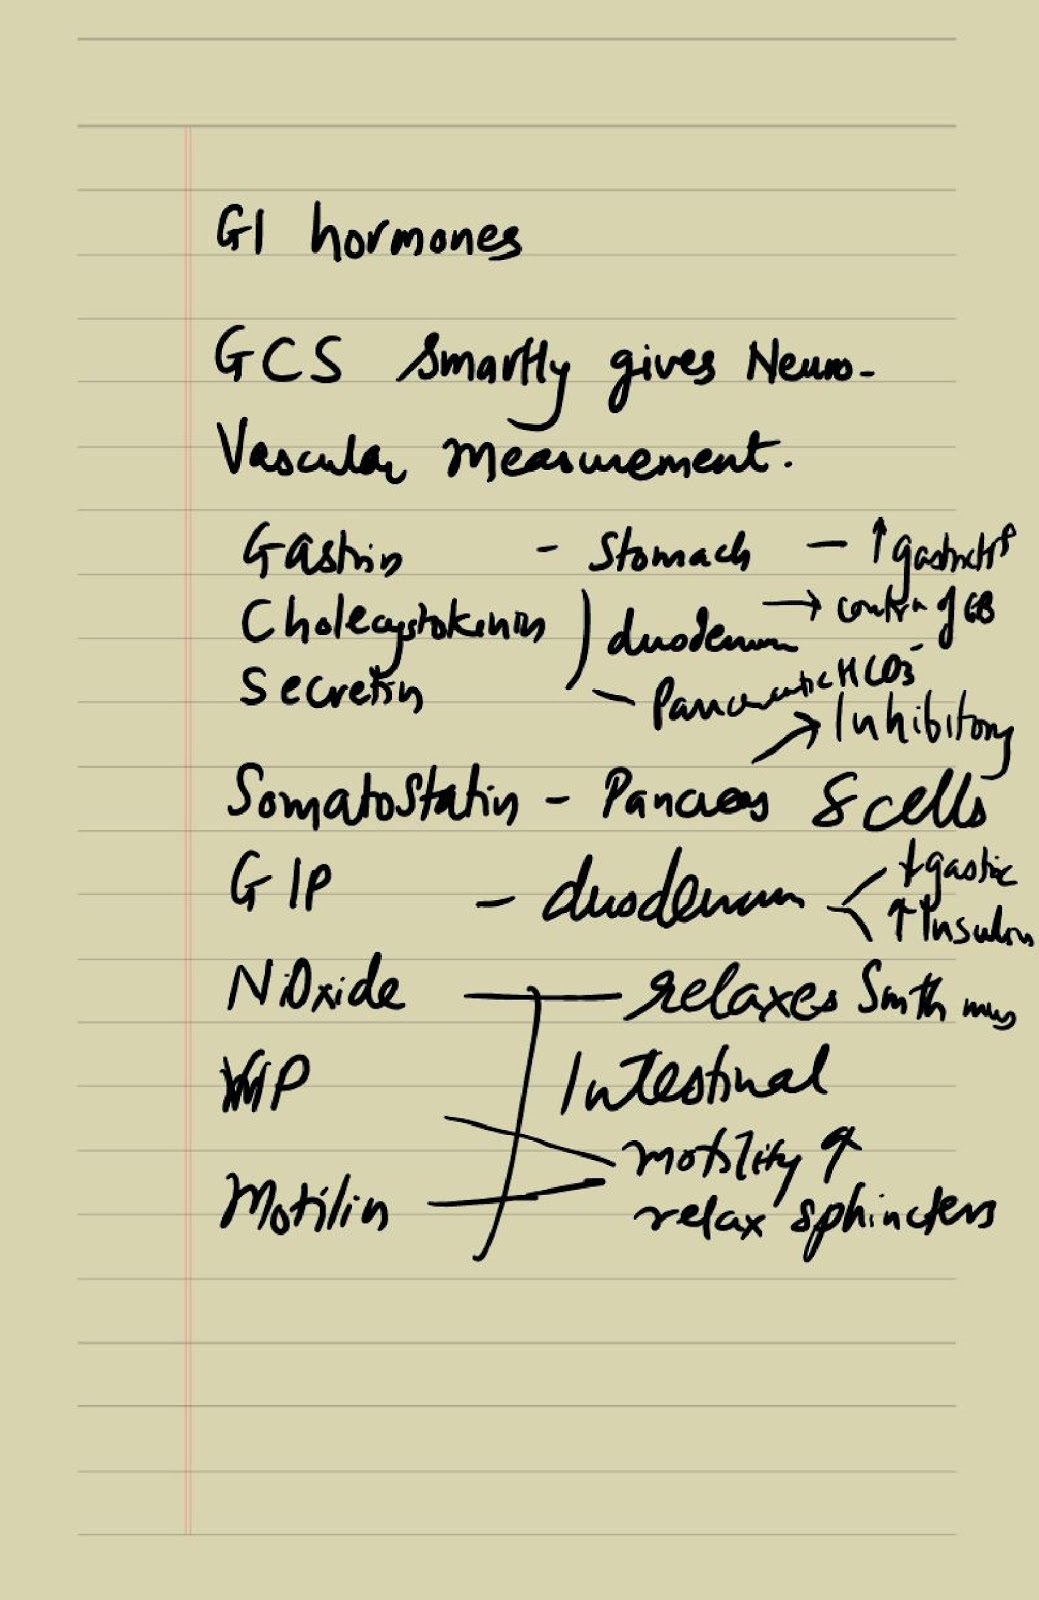 GI hormones
GCS Smartly gives Neuro-
Vascular Measurement.
Gastrin - Stomach - ↑ gastric H⁺
Cholecystokinin duodenum → contrn of GB
Secretin - Pancreatic HCO3-
→ Inhibitory
Somatostatin - Pancreas δ cells
GIP - duodenum ↓ gastric
↑ Insulin
NiOxide - relaxes Smth mus
VIP Intestinal
motility ↑
Motilin relax sphincters